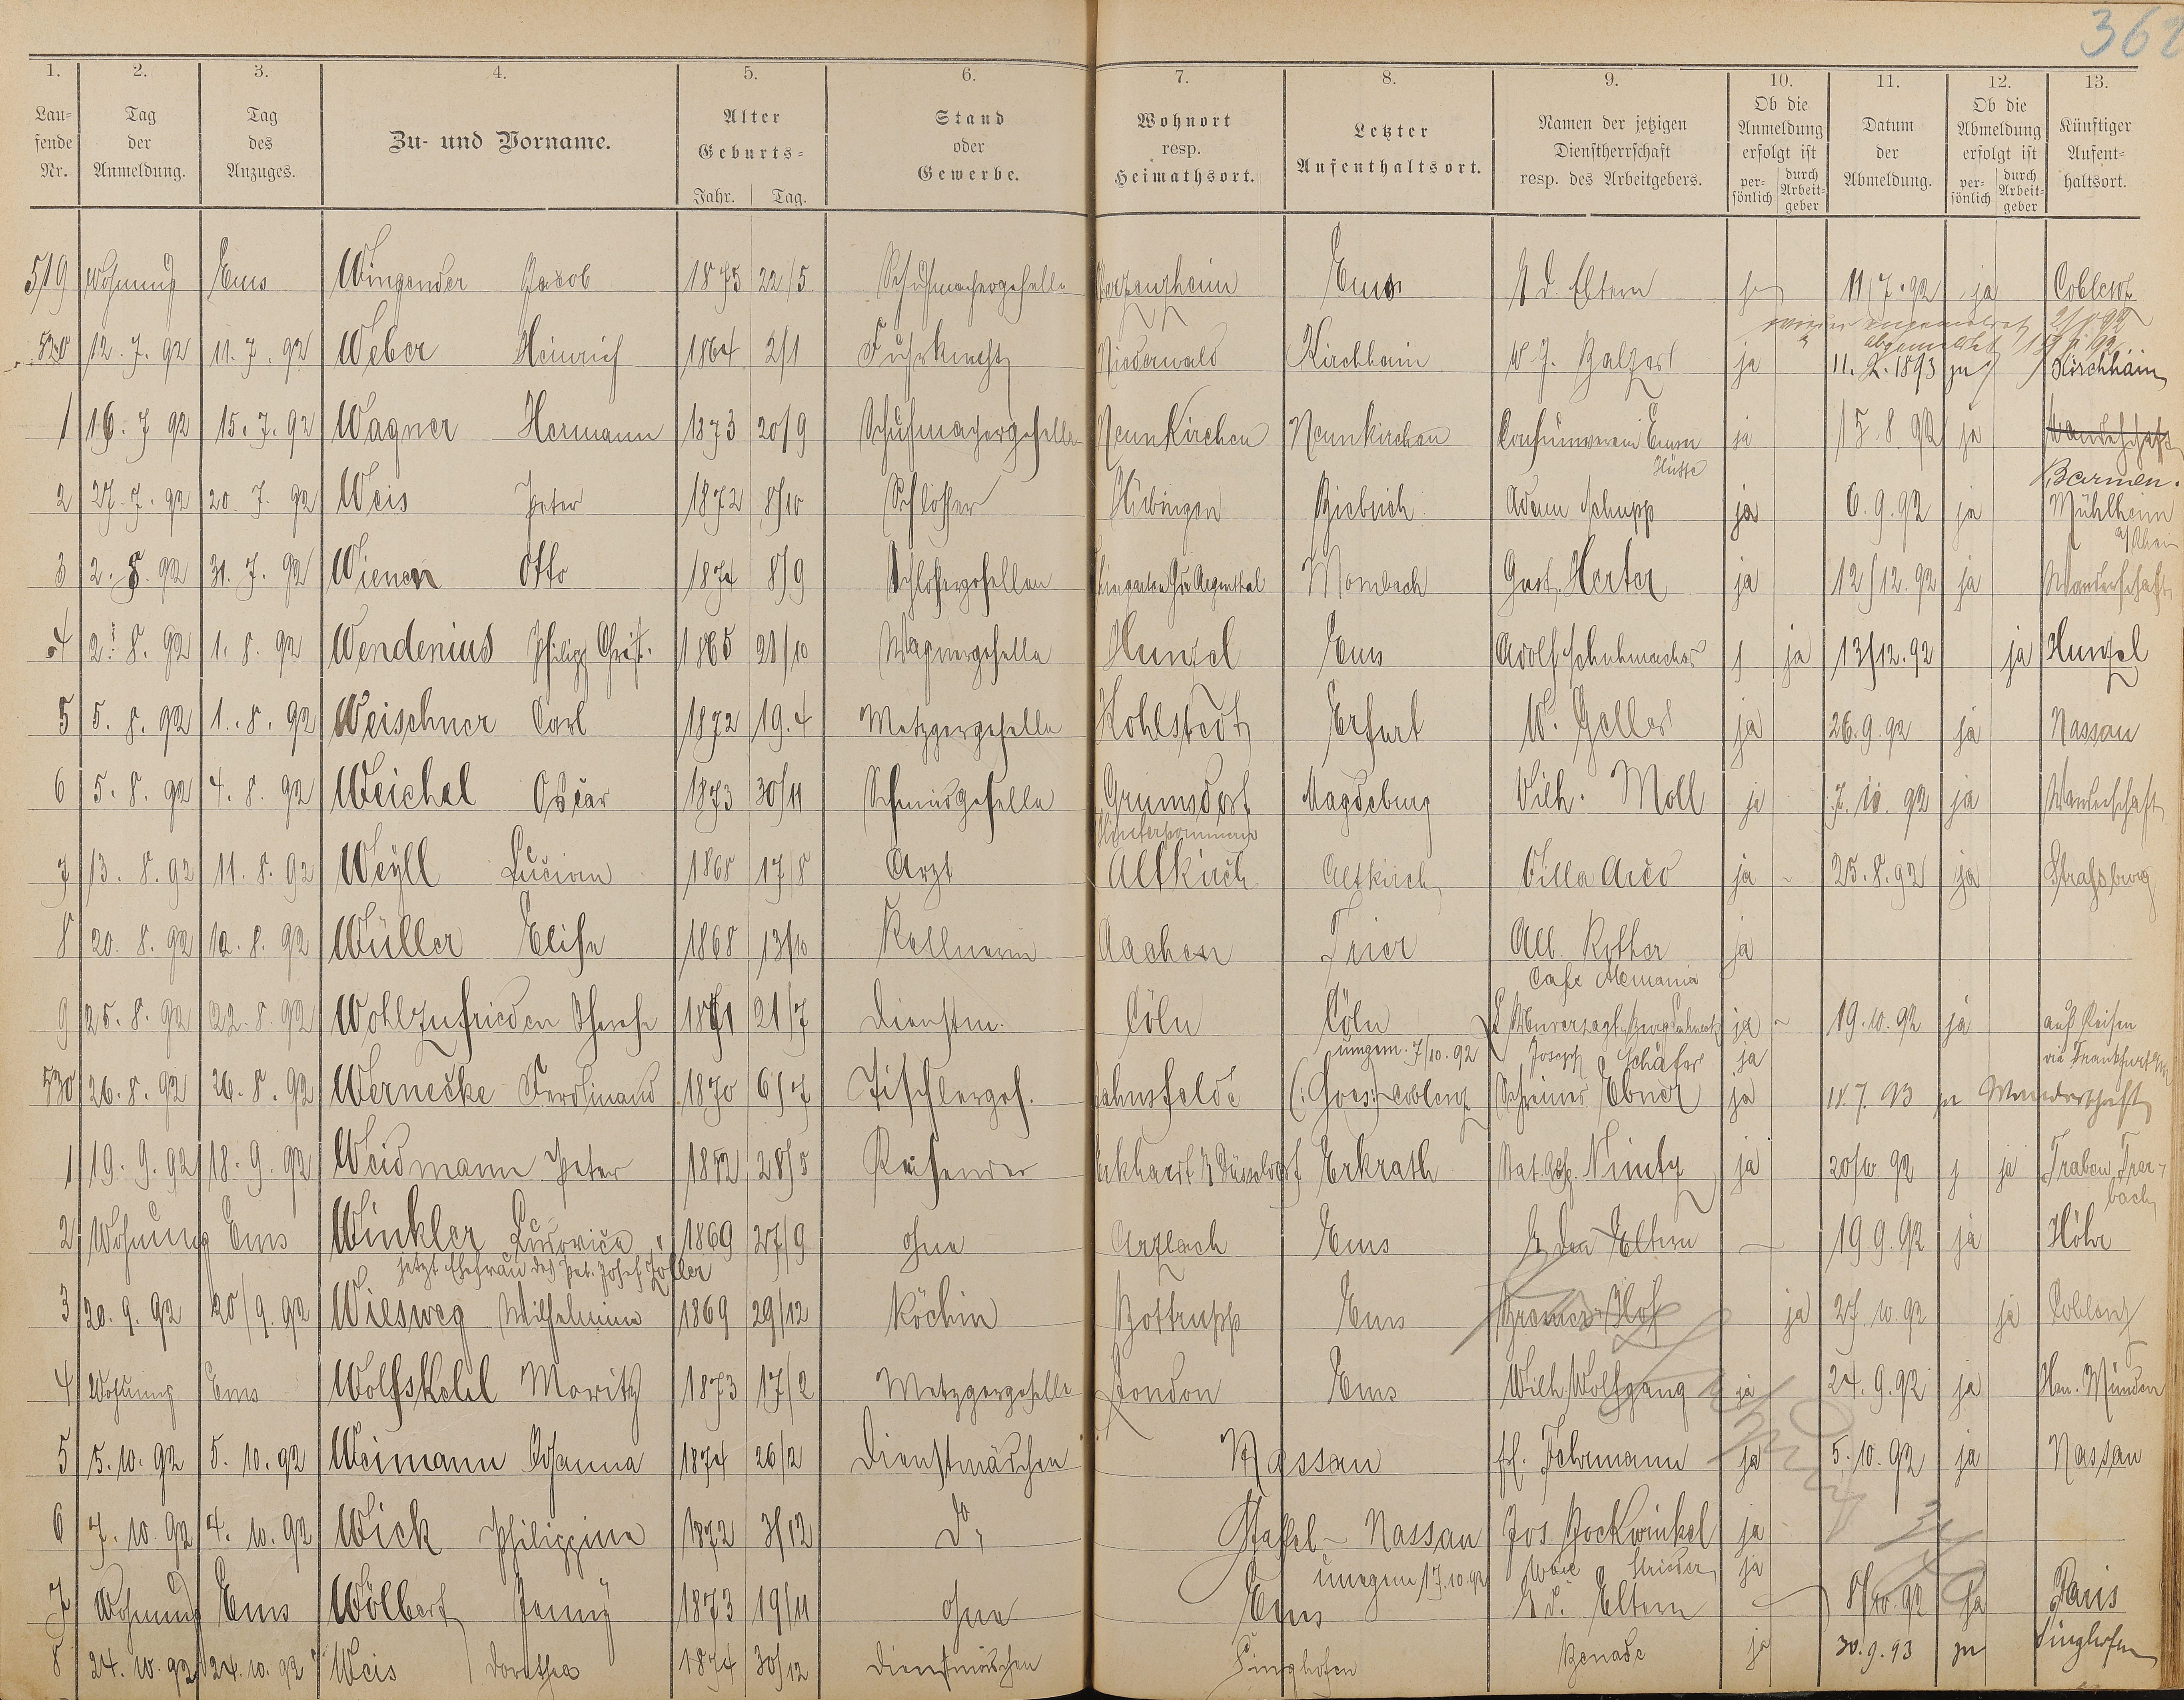 362
1. 2. 3. 4. 5. 6. 7. 8. 9. 10. 11. 12. 13.
Laufende Nr. Tag der Anmeldung. Tag des Anzuges. Zu- und Vorname. Alter Geburts- Jahr. Tag. Stand oder Gewerbe. Wohnort resp. Heimathsort. Letzter Aufenthaltsort. Namen der jetzigen Dienstherrschaft resp. des Arbeitgebers. Ob die Anmeldung erfolgt ist persönlich durch Arbeitgeber Datum der Abmeldung. Ob die Abmeldung erfolgt ist persönlich durch Arbeitgeber Künftiger Aufenthaltsort.
519 Wohnung Ems Wingender Jacob 1875 22/5 Schuhmachergeselle Ems b d. Eltern ja 11/7.92 ja Coblenz
wieder angemeldet 2/8 92
abgemeldet
520 12.7.92 11.7.92 Weber Heinrich 1864 2/1 Fuhrknecht Niederwald Kirchhain W. J. Balzer ja 11.2.1893 ja Kirchhain
1 16.7 92 15.7.92 Wagner Hermann 1873 20/9 Schuhmachergeselle Neunkirchen Neunkirchen Consumverein Emser Hütte ja 15.8.92 ja Wanderschaft
Barmen.
2 27.7.92 20.7.92 Weis Peter 1872 8/10 Schlosser Biebrich Adam Schupp ja 6.9.92 ja Mühlheim a/Rhein
3 2.8.92 31.7.92 Wienen Otto 1874 8/9 Schlossergesellen Mombach Gust. Herter ja 12/12.92 ja Wanderschaft
4 2.8.92 1.8.92 Wendenius Philipp Christ. 1865 21/10 Wagnergeselle Hunzel Ems Adolf Schuhmacher j ja 13/12.92 ja Hunzel
5 5.8.92 1.8.92 Weischner Carl 1872 19.4 Metzgergeselle Kohlstedt Erfurt W. Geller ja 26.9.92 ja Nassau
6 5.8.92 4.8.92 Weichel Oscar 1873 30/11 Schmiedgeselle Grumsdorf Magdeburg Wilh. Moll ja 7.10.92 ja Wanderschaft
Hinterpommern
7 13.8.92 11.8.92 Weyll Lucian 1865 17/8 Arzt Altkirch Altkirch Villa Arco ja 25.8.92 ja Strassburg
8 20.8.92 12.8.92 Wüller Elise 1868 13/10 Kellnerin Aachen Trier Alb. Rother ja
Cafe Alemania
9 25.8.92 22.8.92 Wohlzufrieden Therese 1871 21/7 Dienstm. Cöln Cöln ja 19.10.92 ja auf Reisen
umgem. 7/10.92 Joseph Schäfer ja via Frankfurt
530 26.8.92 26.8.92 Wernecke Ferdinand 1870 6/7 Tischlerges. Jahnsfelde (: Goes :) Coblenz Schreiner Ebner ja 11.7.93 ja Wanderschaft
1 19.9.92 18.9.92 Weidmann Peter 1852 28/5 Reisender Erkrath Nimtz ja 20/10 92 j ja Traben Trarbach
2 Wohnung Ems Winkler Ludovica 1869 27/9 ohne Arzbach Ems b den Eltern 19 9.92 ja Höhr
jetzt Ehefrau des Pet. Josef Zöller
3 20.9.92 20/9.92 Wiesweg Wilhelmine 1869 29/12 Köchin Bottrupp Ems Bremer Hof ja 27.10.92 ja Coblenz
4 Wohnung Ems Wolfskehl Moritz 1873 17/2 Metzgergeselle London Ems Wilh. Wolfgang ja 24.9.92 ja Han. Münden
5 5.10.92 5.10.92 Weimann Johanna 1874 26/2 Dienstmädchen Nassau frl. Fehrmann ja 5.10.92 ja Nassau
6 7.10.92 4.10.92 Wick Philippine 1872 3/12 do. Staffel - Nassau Jos. Bockwinkel ja
umgem 17.10.92 Strieder ja
7 Wohnung Ems Wölbert Jenny 1873 19/11 ohne Ems b d. Eltern 8/10.92 ja Paris
8 24.10.92 24.10.92 Weis Dorothea 1874 30/12 Dienstmädchen Singhofen Benade ja 30.9.93 ja Singhofen